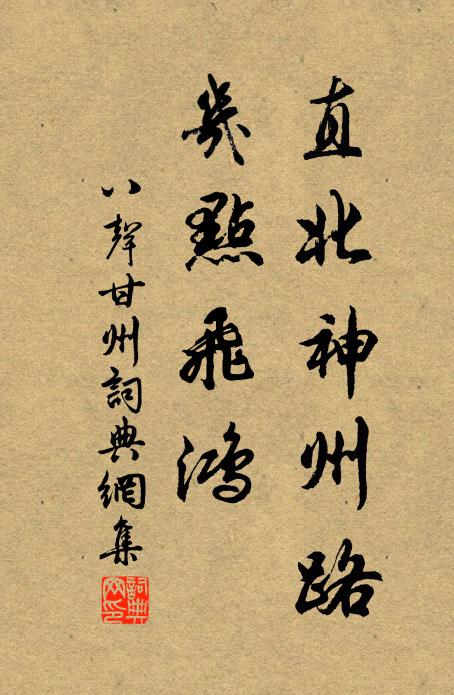 直北神州路
幾點飛鴻
八聲甘州詞典網集
詞典
网印